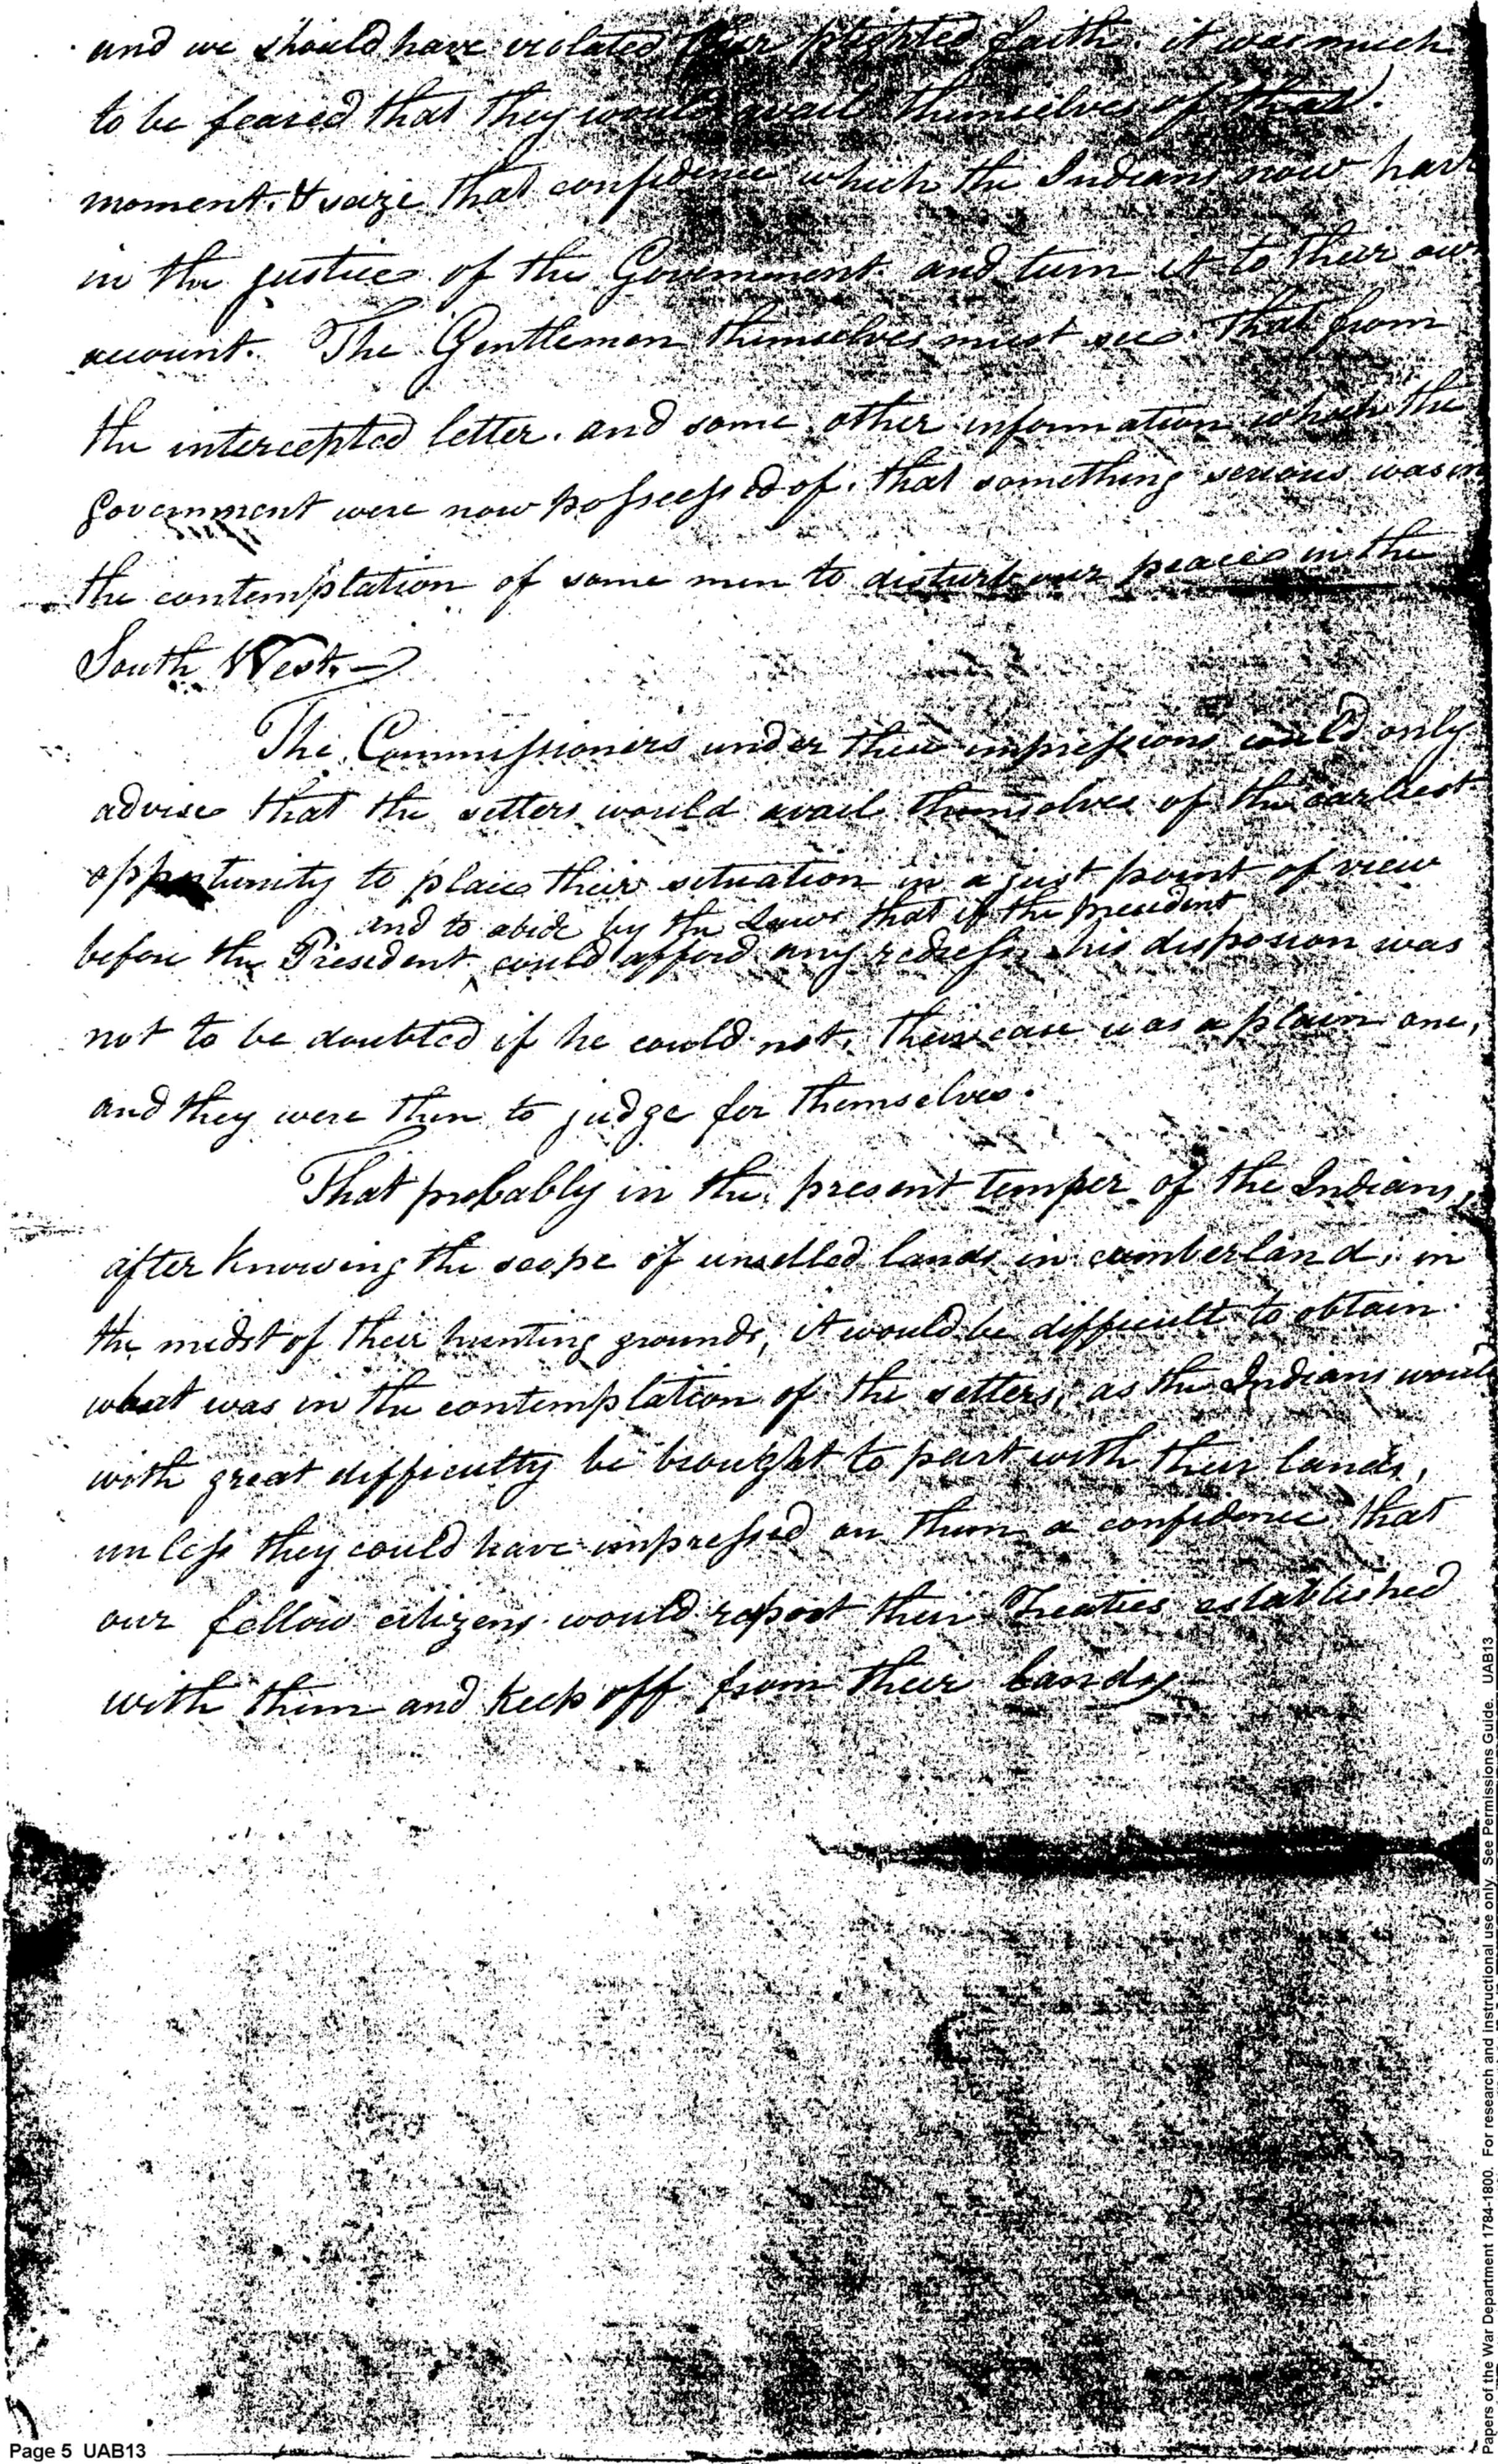 and we should have violated our plighted faith. it was much
to be feared that they would avail themselves of that
moment. & seize that confidence which the Indians now have
in the justice of the Government and turn it to their own
account. The Gentlemen themselves must see. that from
the intercepted letter. and some other information which the
government were now possessed of. that something serious was in
the contemplation of some men to disturb our peace in the
South West.—
The Commissioners under these impressions could only
advise that the setters would avail themselves of the earliest
opportunity to place their situation in a just point of view
and to abide by the Laws that if the president
before the President could afford any redress his disposion was
not to be doubted if he could not, their case was a plain one,
and they were then to judge for themselves.
That probably in the present temper of the Indians,
after knowing the scope of unsellled lands in cumberland, in
the midst of their hunting grounds, it would be difficult to obtain
what was in the contemplation of the setters, as the Indians would
with great difficulty be brought to part with their lands,
unless they could have impressed on them a confidence that
our fellow citizens would respect their Treaties established
with them and keep off from their Lands
Page 5 UAB13
Papers of the War Department 1784-1800. For research and instructional use only. See Permissions Guide. UAB13